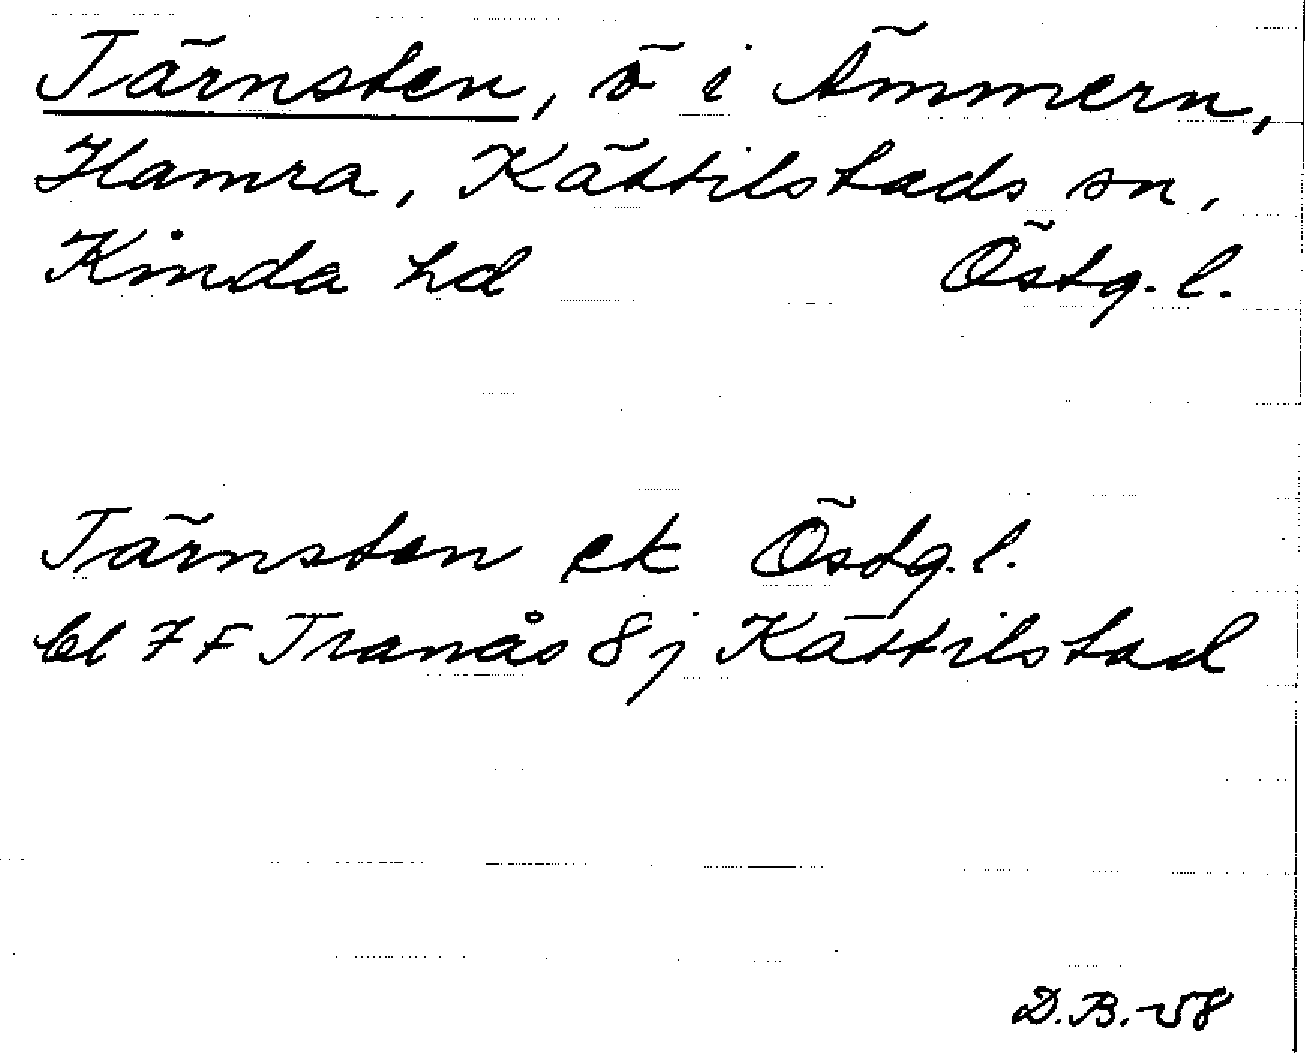 Tärnsten, ö i Ämmern,
Hamra, Kättilstads sn,
Kinda hd Östg. l.
Tärnsten ek Östg. l.
bl 7 F Tranås 8j Kättilstad
D.B.-58